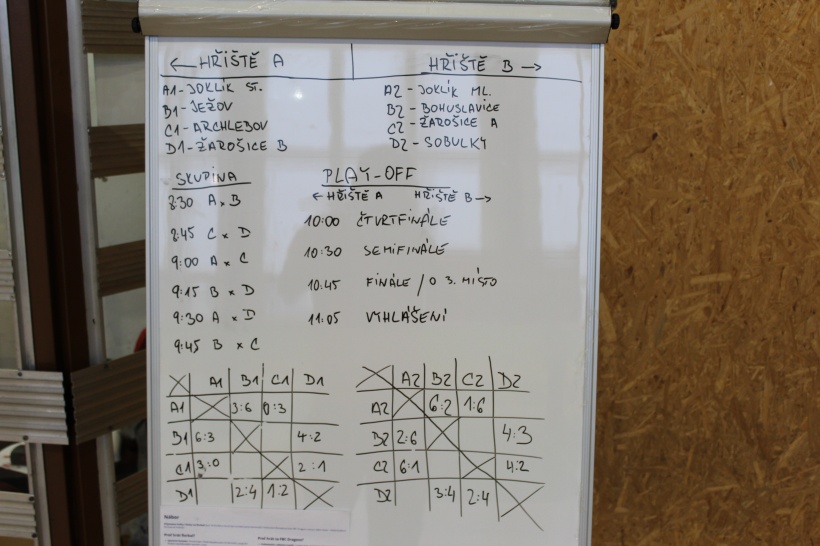 ← HŘIŠTĚ A HŘIŠTĚ B →
A1 - JOKLÍK ST. A2 - JOKLÍK ML.
B1 - JEŽOV B2 - BOHUSLAVICE
C1 - ARCHLEBOV C2 - ŽAROŠICE A
D1 - ŽAROŠICE B D2 - SOBULKY
SKUPINA PLAY-OFF
← HŘIŠTĚ A HŘIŠTĚ B →
8:30 A x B
8:45 C x D
9:00 A x C
9:15 B x D
9:30 A x D
9:45 B x C
10:00 ČTVRTFINÁLE
10:30 SEMIFINÁLE
10:45 FINÁLE / O 3. MÍSTO
11:05 VYHLÁŠENÍ
A1 B1 C1 D1
A1 3:6 0:3
B1 6:3 4:2
C1 3:0 2:1
D1 2:4 1:2
A2 B2 C2 D2
A2 6:2 1:6
B2 2:6 4:3
C2 6:1 4:2
D2 3:4 2:4